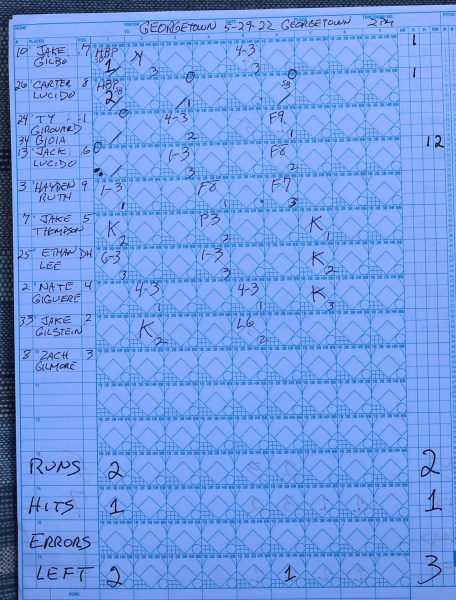 GEORGETOWN 5-29-22 GEORGETOWN 2 PM
10 JAKE GILBO 7 HBP 1 K 3 4-3 3 1
26 CARTER LUCIDO 8 HBP SB 2 1 SB 1
24 TY GIROUARD 1 4-3 2 F9 1
34 GIOIA
13 JACK LUCIDO 6 1-3 3 F8 2 12
3 HAYDEN RUTH 9 1-3 1 F8 1 F-7 3
7 JAKE THOMPSON 5 K 2 P3 2 K 1
25 ETHAN LEE DH 6-3 3 1-3 3 K 2
2 NATE GIGUERE 4 4-3 1 4-3 1 K 3
33 JAKE GILSTEIN 2 K 2 L6 2
8 ZACH GILMORE 3
RUNS 2 2
HITS 1 1
ERRORS
LEFT 2 1 3